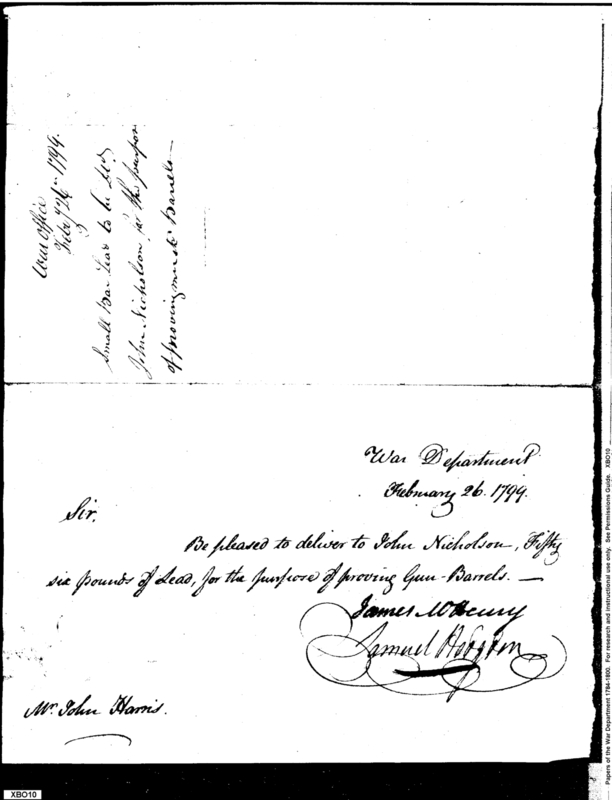 War Office
Feby 26th 1799.
Small Bar Lead to be
John Nicholson for the purpose
of proving musk. Barrels
War Department
February 26. 1799.
Sir,
Be pleased to deliver to John Nicholson, Fifty
six pounds of Lead, for the purpose of proving Gun-Barrels. —
James McHenry
Samuel Hodgdon
Mr. John Harris.
XBO10
Papers of the War Department 1784-1800. For research and instructional use only. See Permissions Guide. XBO10